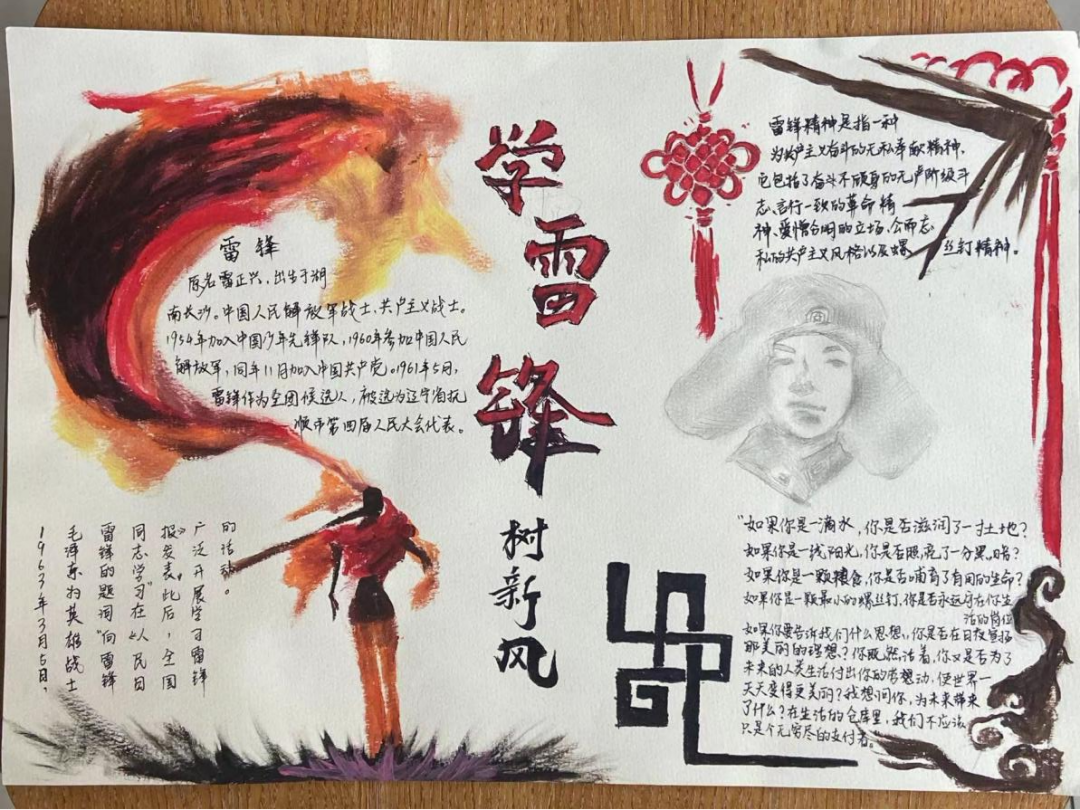 学雷锋
树新风
雷锋
原名雷正兴，出生于湖
南长沙。中国人民解放军战士、共产主义战士。
1954年加入中国少年先锋队，1960年参加中国人民
解放军，同年11月加入中国共产党。1961年5月，
雷锋作为全团候选人，被选为辽宁省抚
顺市第四届人民大会代表。
1963年3月5日，
毛泽东为英雄战士
雷锋的题词“向雷锋
同志学习”在《人民日
报》发表，此后，全国
广泛开展学习雷锋
的活动。
雷锋精神是指一种
为共产主义奋斗的无私奉献精神，
它包括了奋斗不顾身的无产阶级斗
志、言行一致的革命精
神、爱憎分明的立场、公而忘
私的共产主义风格以及螺丝钉精神。
“如果你是一滴水，你是否滋润了一寸土地？
如果你是一线阳光，你是否照亮了一分黑暗？
如果你是一颗粮食，你是否哺育了有用的生命？
如果你是一颗最小的螺丝钉，你是否永远守在你生
活的岗位
如果你要告诉我们什么思想，你是否在日夜宣扬
那美丽的理想？你既然活着，你又是否为了
未来的人类生活付出你的劳动，使世界一
天天变得更美丽？我想问你，为未来带来
了什么？在生活的仓库里，我们不应该
只是个无穷尽的支付者。